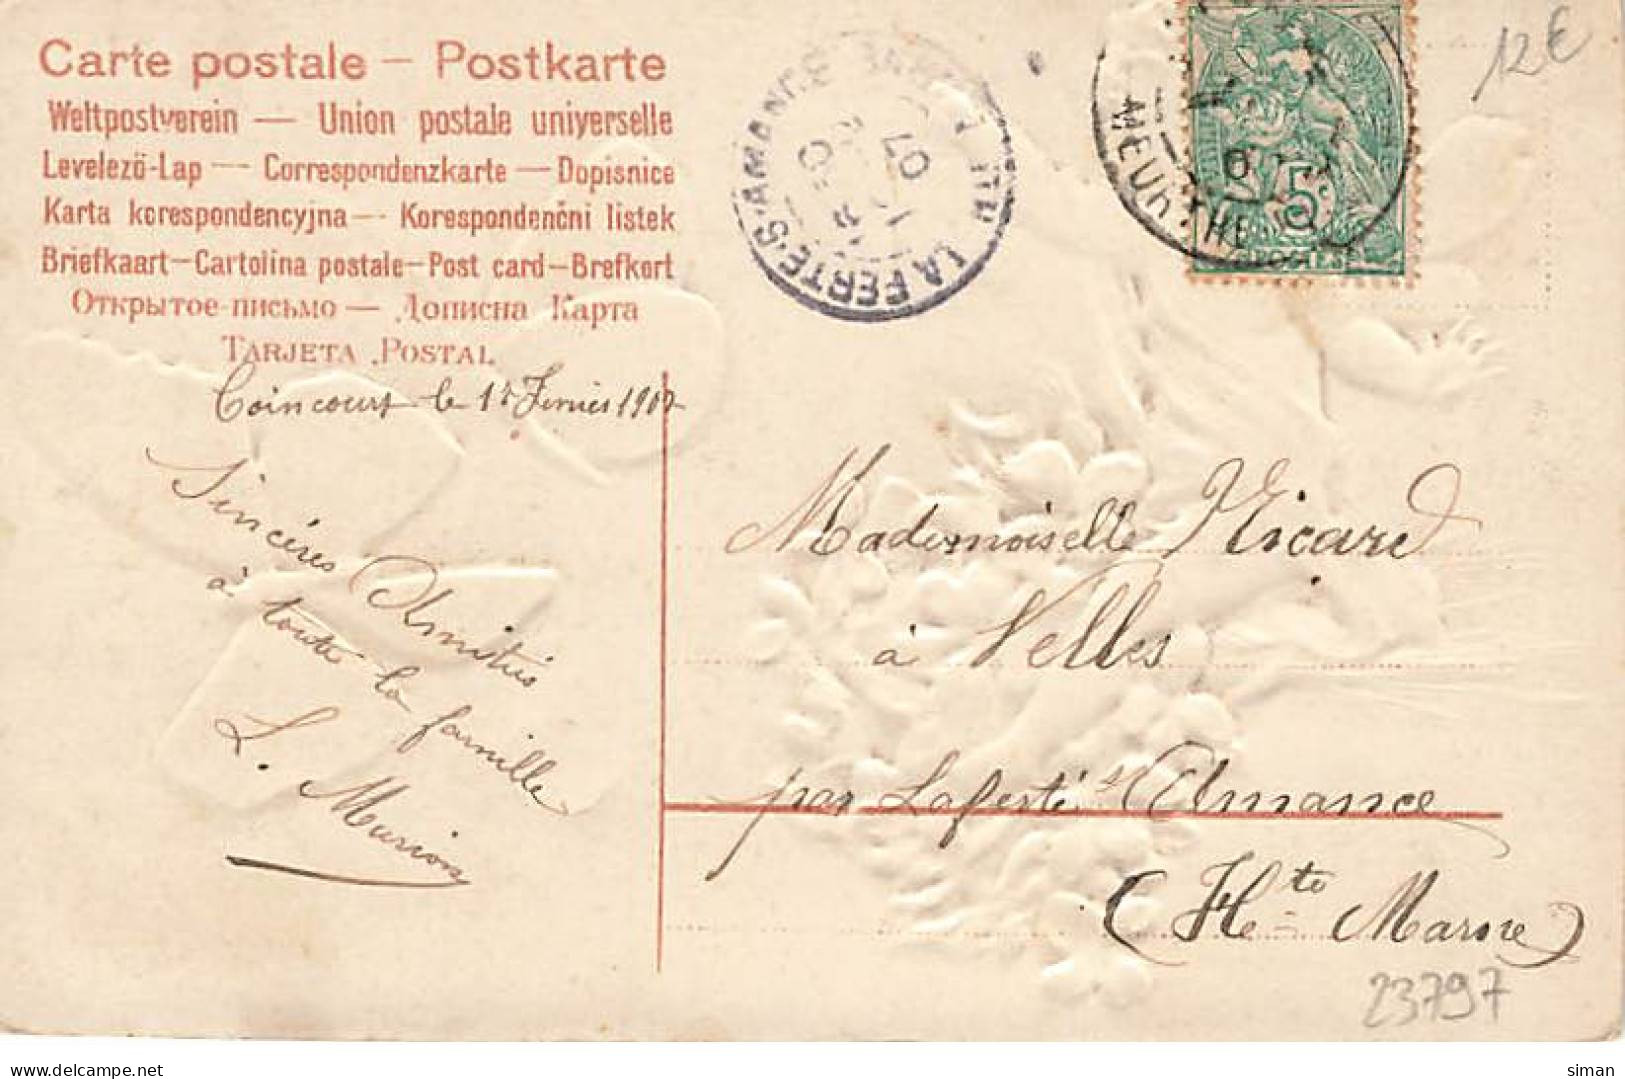 Carte postale – Postkarte
Weltpostverein — Union postale universelle
Levelező-Lap — Correspondenzkarte — Dopisnice
Karta korespondencyjna — Korespondenční lístek
Briefkaart — Cartolina postale — Post card — Brefkort
Открытое письмо — Дописна Карта
TARJETA POSTAL
Coincourt le 1r Fevrier 1907
Sincéres Amitiés
à toute la famille
L. Marion
LA FERTE-S-AMANCE
07
MEURTHE
5c
12€
Mademoiselle Picard
à Velles
par Laferté s Amance
(Hte Marne)
23797
www.delcampe.net
siman